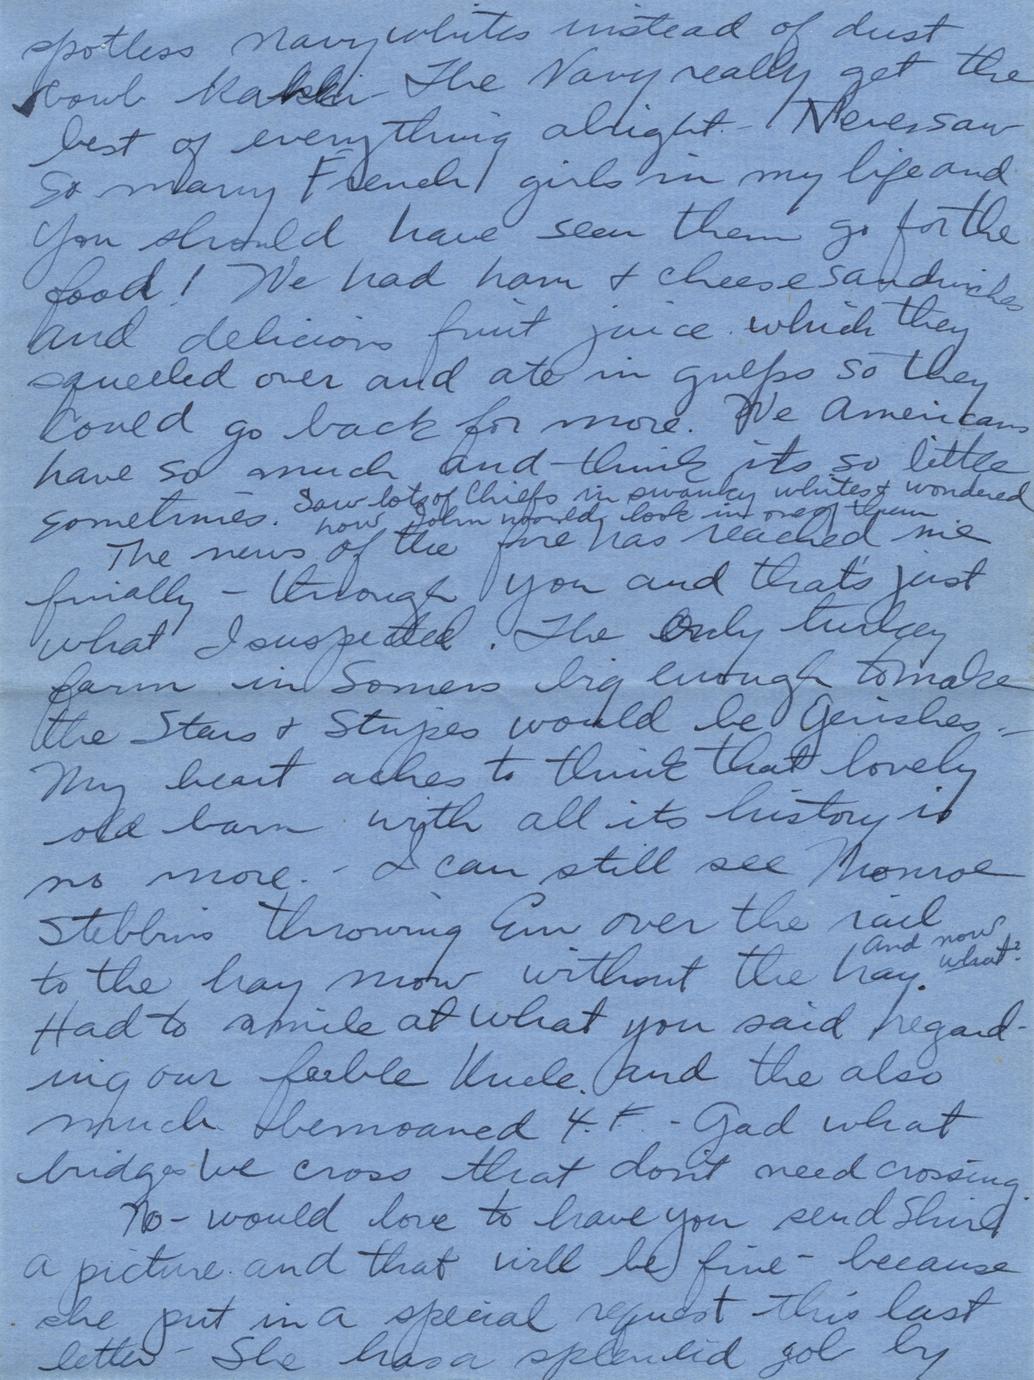 spotless Navy whites instead of dust
bowl Kakki - The Navy really get the
best of everything alright. - Never saw
so many French girls in my life and
you should have seen them go for the
food! We had ham & cheese sandwiches
and delicious fruit juice which they
squeeled over and ate in gulps so they
could go back for more. We Americans
have so much and think its so little
sometimes. Saw lots of Chiefs in swanky whites & wondered
how John would look in one of them
The news of the fire has reached me
finally - through you and that's just
what I suspected. The only turkey
farm in Somers big enough to make
the Stars & Stripes would be Gerishes. -
My heart aches to think that lovely
old barn with all its history is
no more. - I can still see Monroe
Stebbins throwing Em over the rail
to the hay mow without the hay. And now
what?
Had to smile at what you said regard-
ing our feeble Uncle. and the also
much bemoaned 4.F. - Gad what
bridges we cross that don't need crossing.
No - would love to have you send Shirl
a picture and that will be fine - because
she put in a special request this last
letter - She has a splendid job by